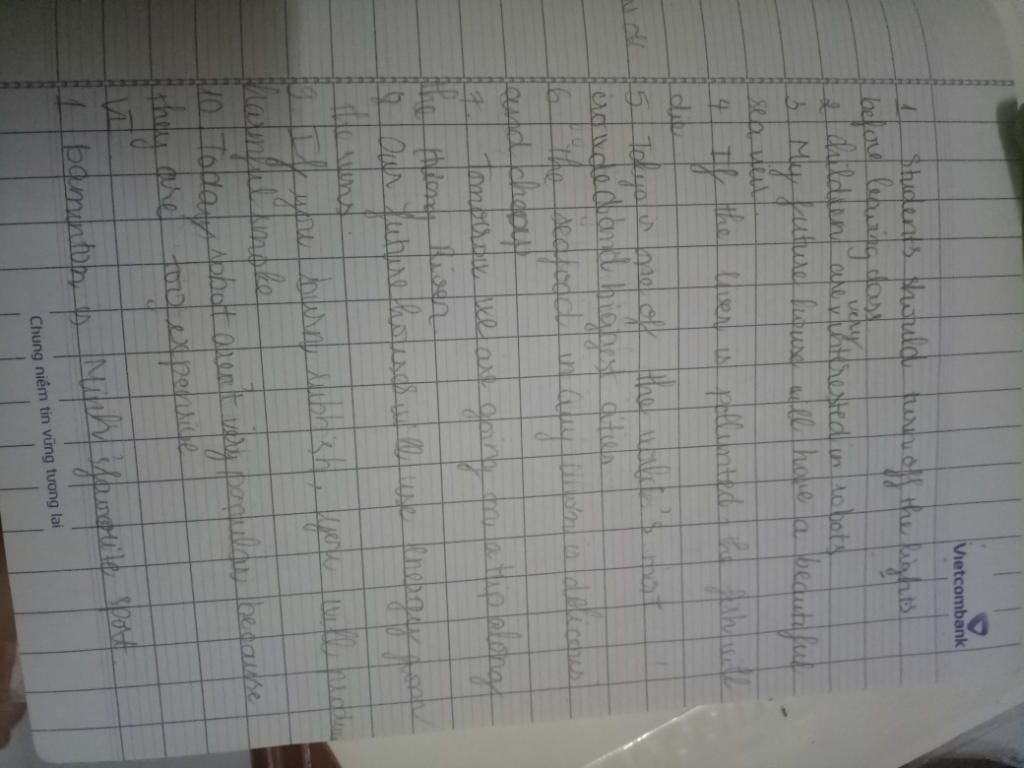 Vietcombank
1 Students should turn off the lights
before leaving class
2 children are very interested in robots
3 My future house will have a beautiful
sea
4 If the river is polluted the fish will
die
5 Tokyo is one of the world's most
crowded and highest cities
6 The seafood in Quy is delicious
and cheap
7. we are going on a trip along
the
8 Our future houses will use from
the
9. If you rubbish, you will
10 Today robot aren't very popular because
they are too expensive
VI
1 is spost
Chung niềm tin vững tương lai